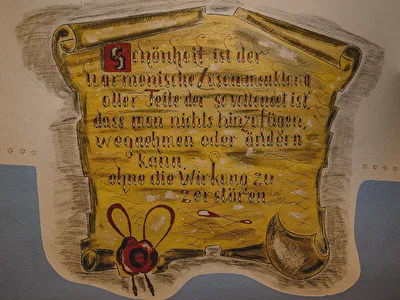 Schönheit ist der
harmonische Zusammenklang
aller Teile der so vollendet ist
dass man nichts hinzufügen,
wegnehmen oder ändern
kann,
ohne die Wirkung zu
zerstören